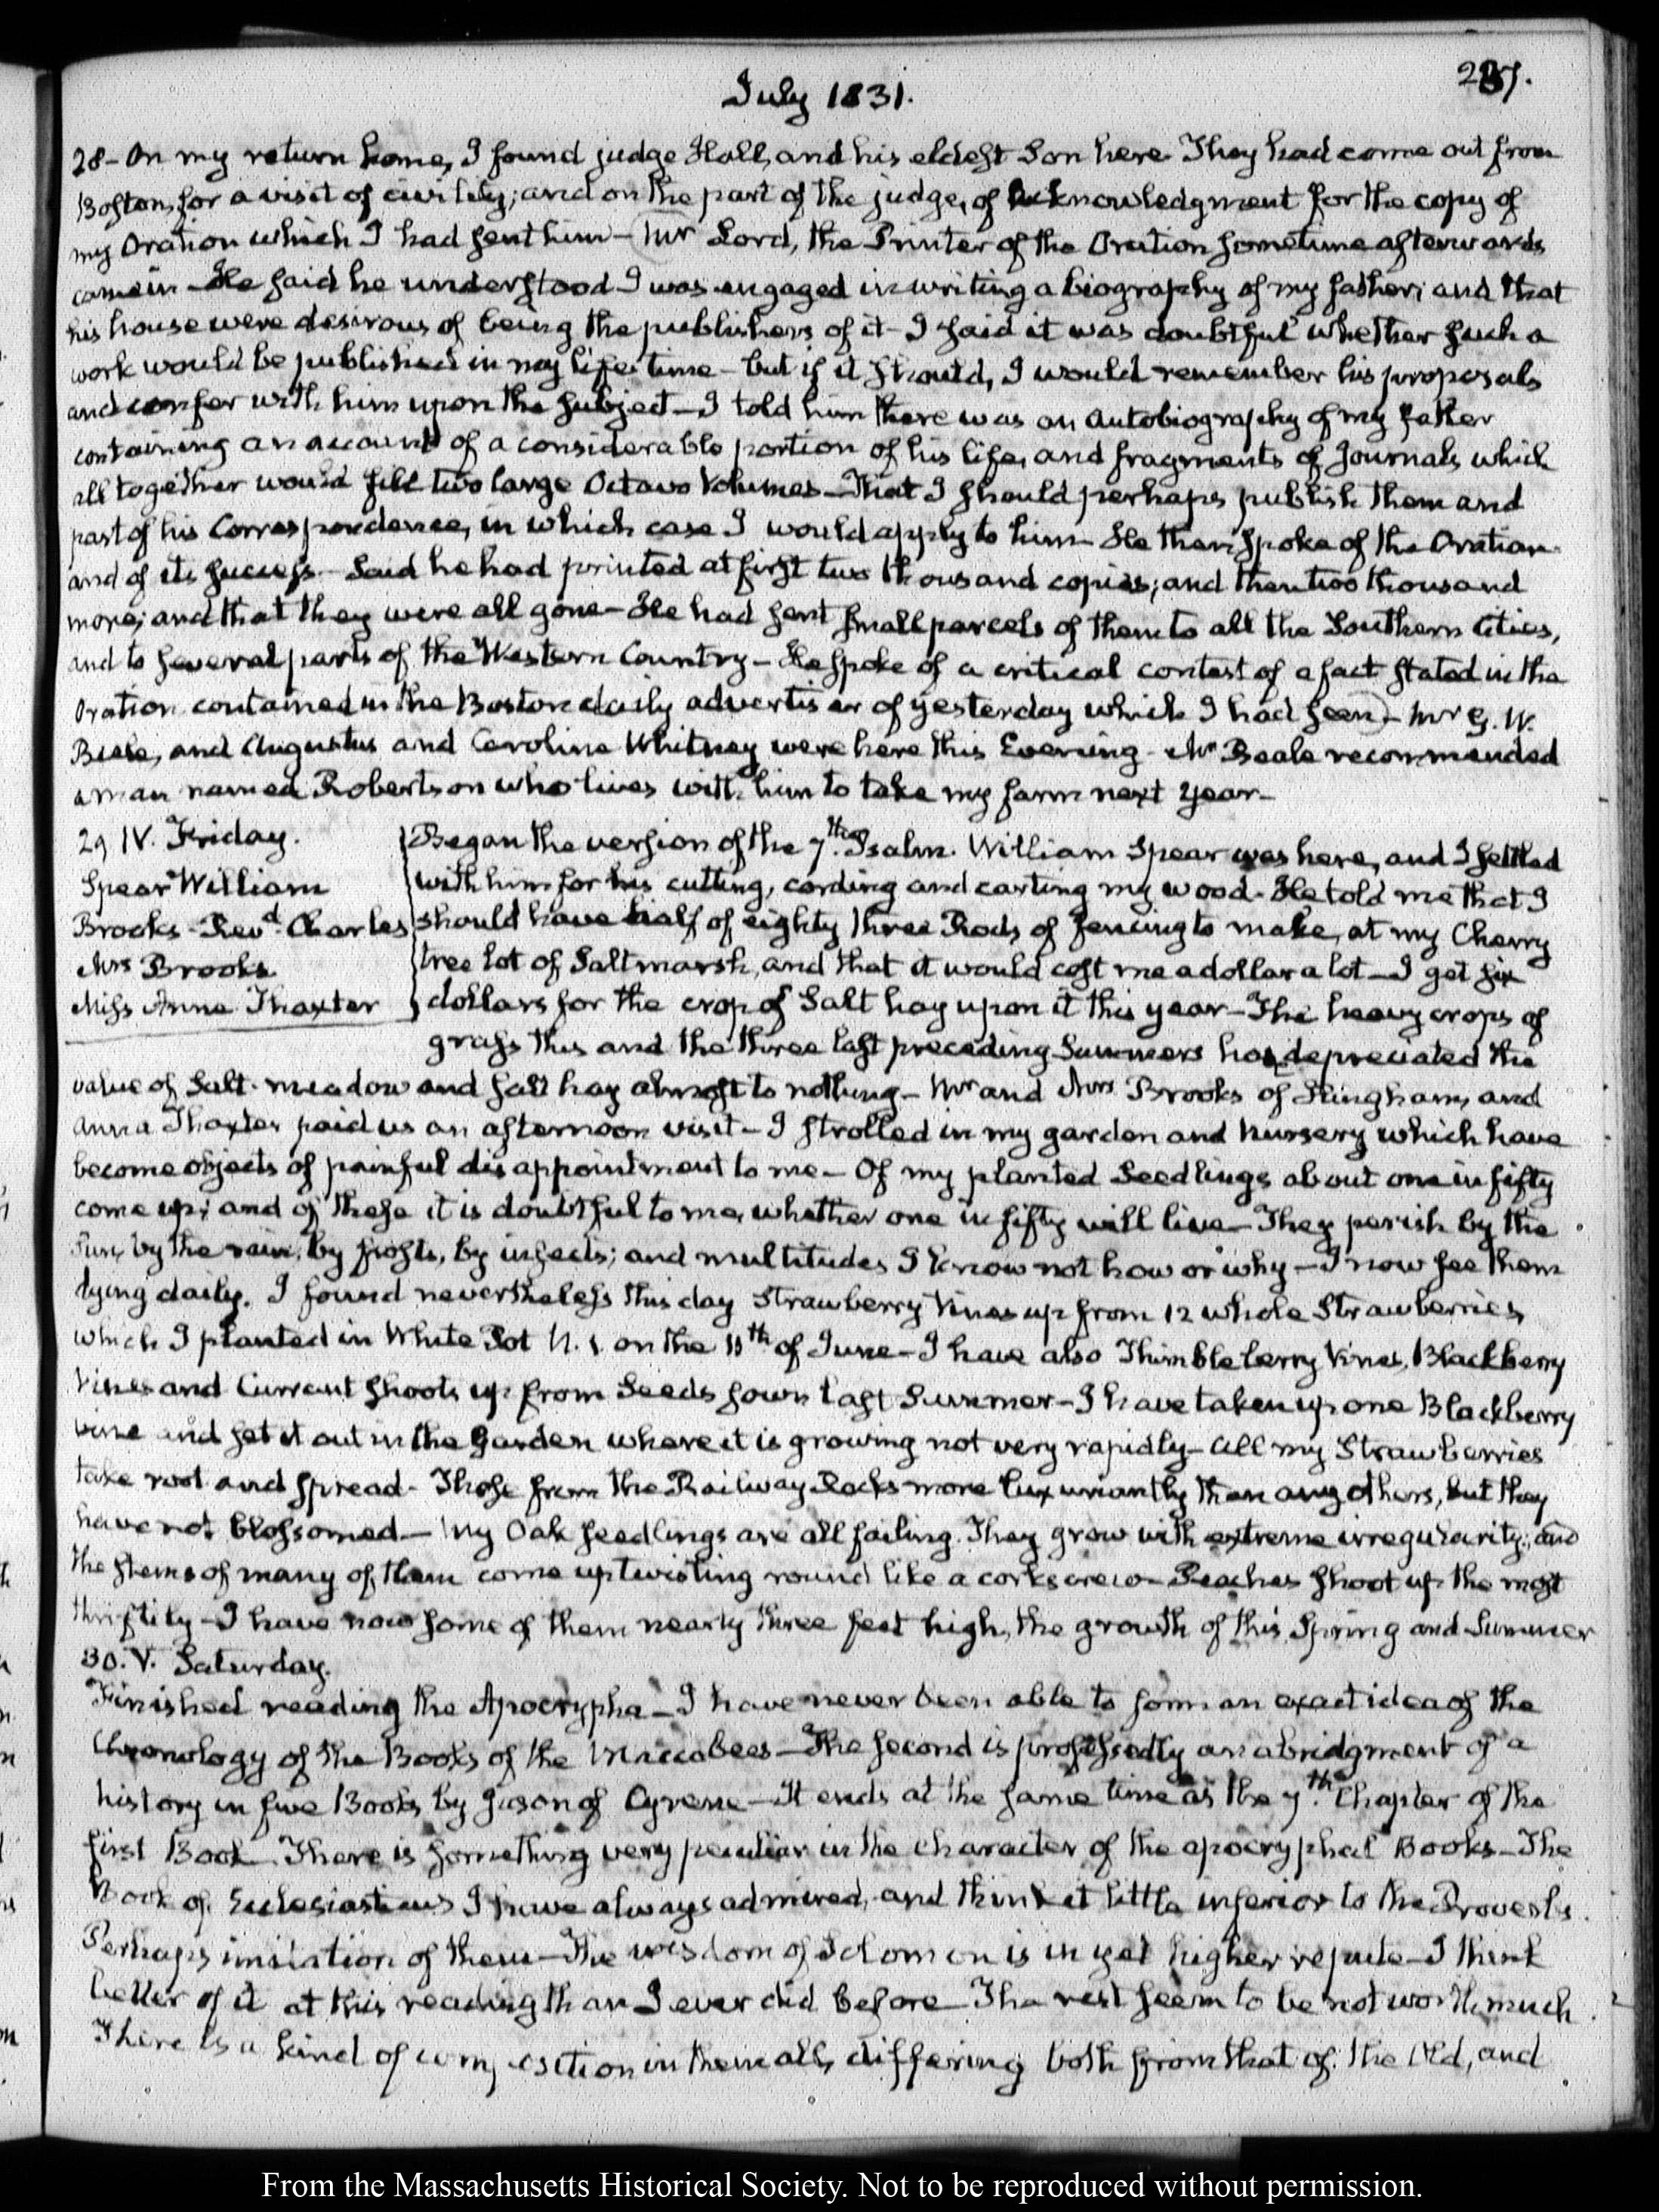 237.
July 1831.
28 - On my return home, I found judge Hall, and his eldest Son here. They had come out from
Boston, for a visit of civility; and on the part of the judge, of acknowledgment for the copy of
my Oration which I had sent him - Mr Lord, the Printer of the Oration sometime afterwards
came in - He said he understood I was engaged in writing a biography of my father; and that
his house were desirous of being the publishers of it - I said it was doubtful whether such a
work would be published in my life time - but if it should, I would remember his proposals
and confer with him upon the subject - I told him there was an Autobiography of my father
containing an account of a considerable portion of his life, and fragments of Journals which
all together would fill two large Octavo Volumes - That I should perhaps publish them and
part of his Correspondence, in which case I would apply to him - He then spoke of the Oration
and of its success - Said he had printed at first two thousand copies; and then two thousand
more; and that they were all gone - He had sent small parcels of them to all the Southern Cities,
and to several parts of the Western Country - He spoke of a critical contest of a fact stated in the
Oration contained in the Boston daily advertiser of yesterday which I had seen - Mr G. W.
Beale, and Augustus and Caroline Whitney were here this Evening - Mr Beale recommended
a man named Robertson who lives with him to take my farm next year -
29 IV. Friday.
Spear William
Brooks - Revd. Charles
Mrs Brooks
Miss Anna Thaxter
Began the version of the 7th. Psalm. William Spear was here, and I settled
with him for his cutting, cording and carting my wood. He told me that I
should have half of eighty three Rods of fencing to make, at my Cherry
tree lot of Salt marsh, and that it would cost me a dollar a lot - I get six
dollars for the crop of Salt hay upon it this year - The heavy crops of
grass this and the three last preceding Summers has depreciated the
value of Salt-meadow and salt hay almost to nothing - Mr and Mrs Brooks of Hingham, and
Anna Thaxter paid us an afternoon visit - I strolled in my garden and nursery which have
become objects of painful disappointment to me - Of my planted Seedlings about one in fifty
come up; and of these it is doubtful to me, whether one in fifty will live - They perish by the
Sun, by the rain, by frosts, by insects; and multitudes I know not how or why - I now see them
dying daily. I found nevertheless this day Strawberry Vines up from 12 whole Strawberries
which I planted in White Pot N. 1. on the 11th of June - I have also Thimbleberry Vines, Blackberry
Vines and Currant shoots up from Seeds sown last Summer - I have taken up one Blackberry
vine and set it out in the Garden where it is growing not very rapidly - All my Strawberries
take root and spread - Those from the Railway Rocks more luxuriantly than any others, but they
have not blossomed - My Oak seedlings are all failing. They grow with extreme irregularity; and
the stems of many of them come up twisting round like a corkscrew - Peaches shoot up the most
thriftily - I have now some of them nearly three feet high, the growth of this Spring and Summer
30. V. Saturday.
Finished reading the Apocrypha - I have never been able to form an exact idea of the
Chronology of the Books of the Maccabees - The second is professedly an abridgment of a
history in five Books by Jason of Cyrene - It ends at the same time as the 7th. Chapter of the
first Book. There is something very peculiar in the character of the apocryphal Books - The
Book of Ecclesiasticus I have always admired, and think it little inferior to the Proverbs.
Perhaps imitation of them - The wisdom of Solomon is in yet higher repute - I think
better of it at this reading than I ever did before - The rest seem to be not worth much.
There is a kind of composition in them all, differing both from that of the Old, and
From the Massachusetts Historical Society. Not to be reproduced without permission.